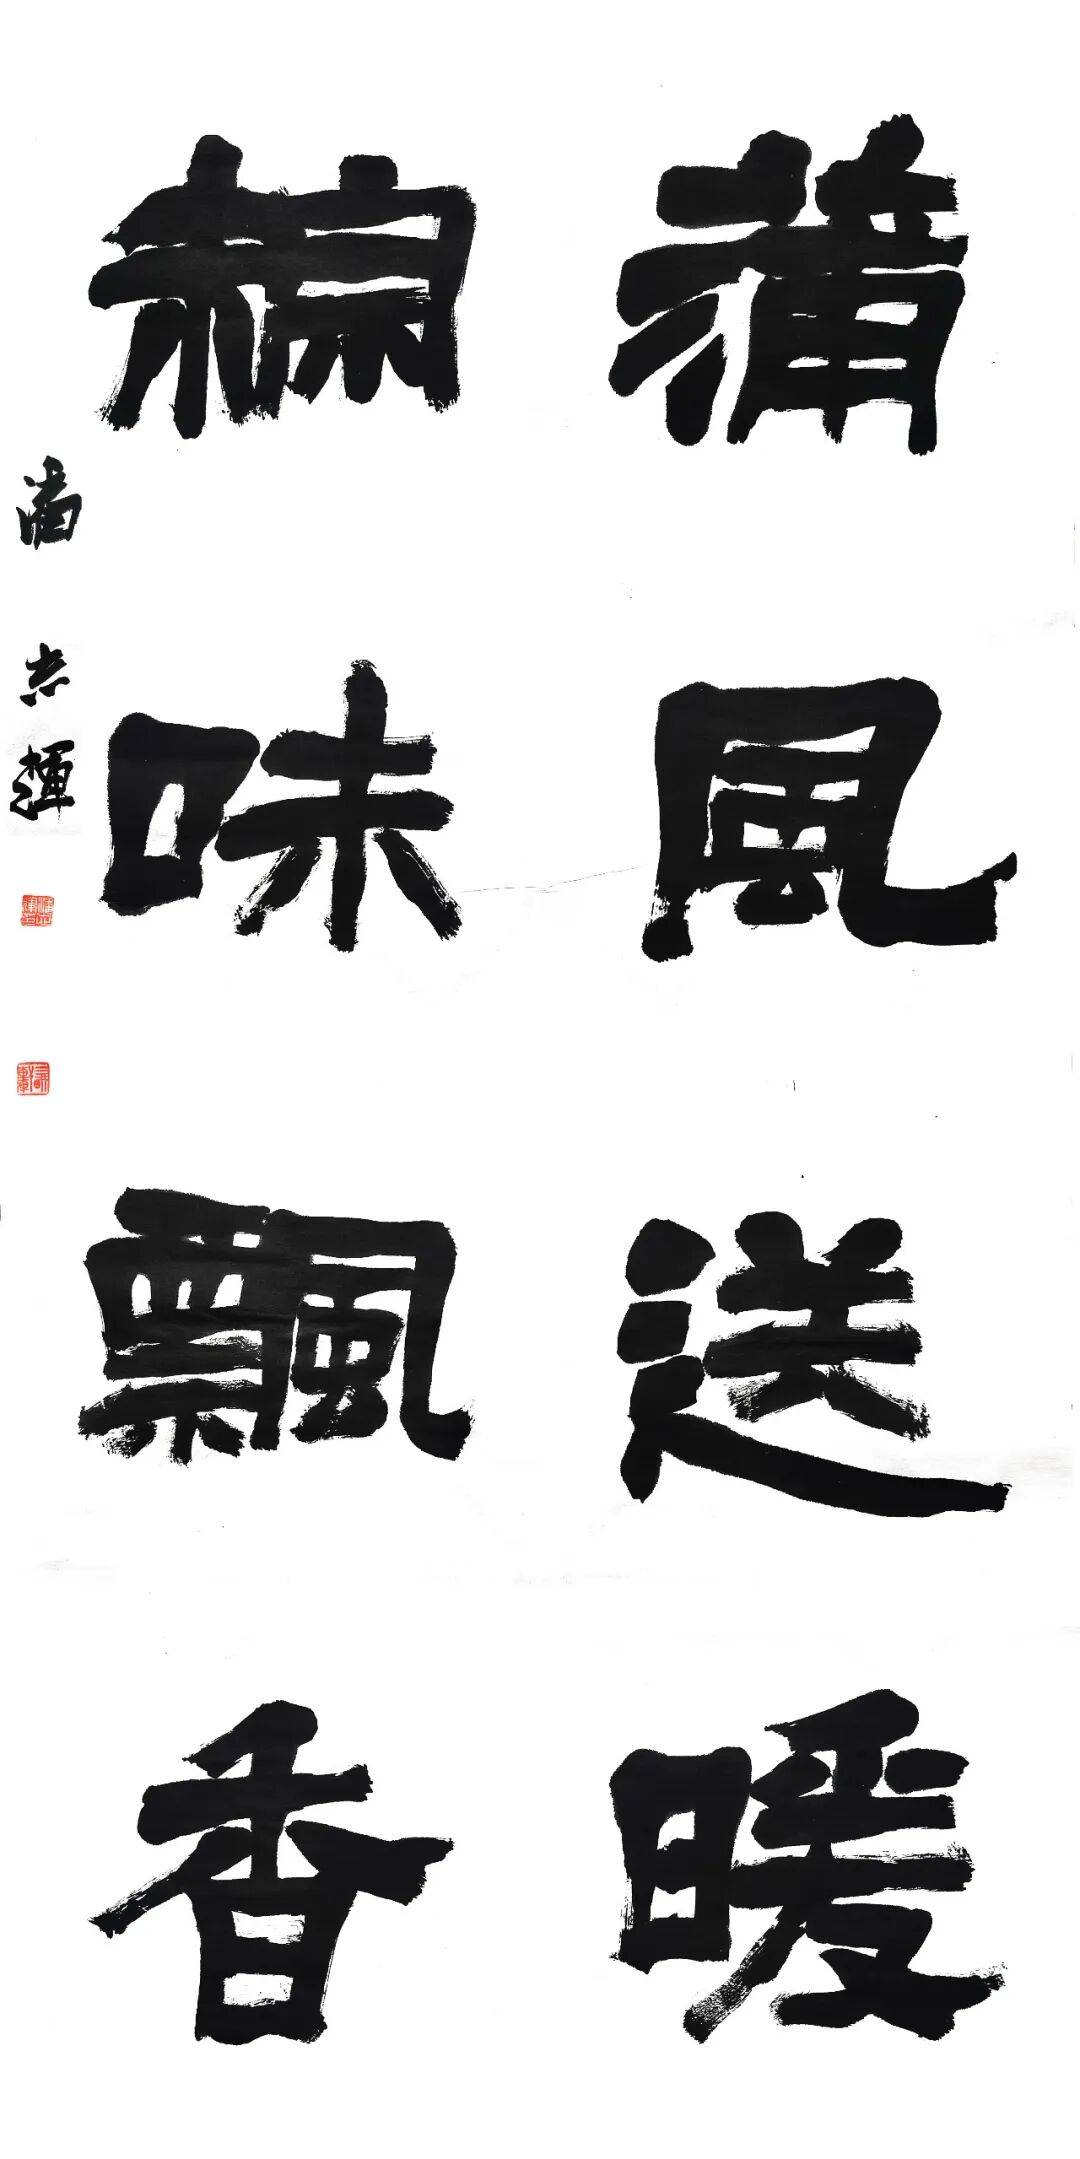 蒲風送暖
粽味飄香
潘志輝